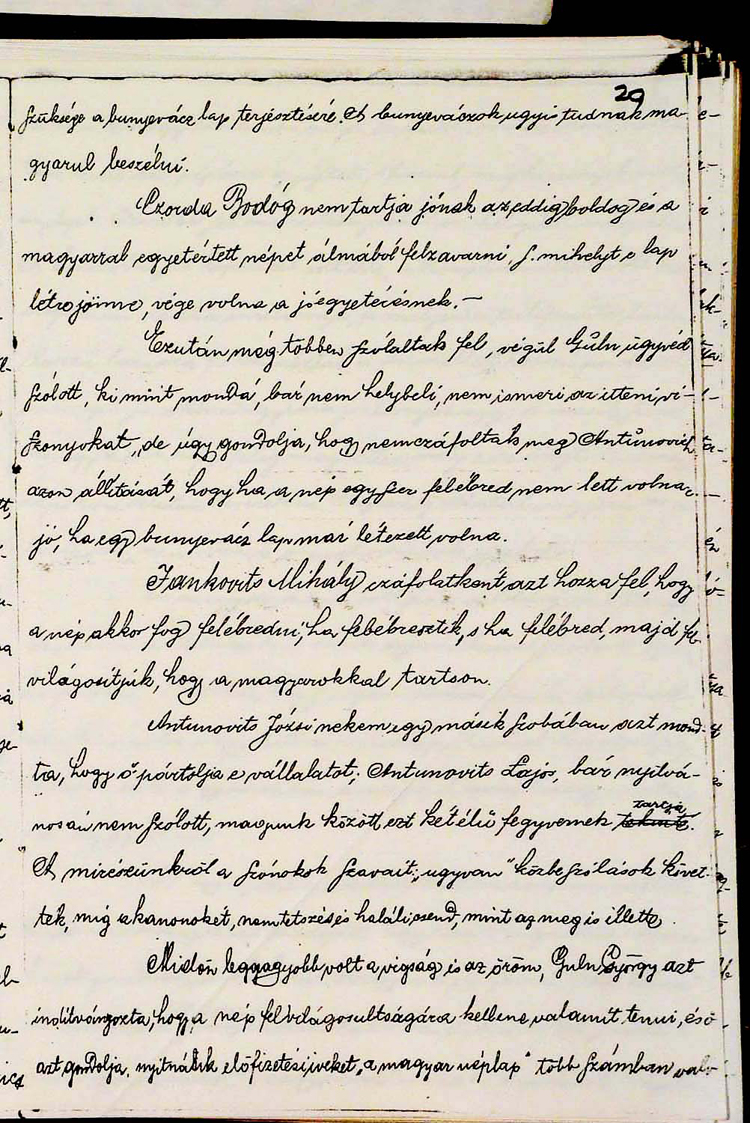 29
szüksége a bunyevácz lap terjesztésére. A bunyeváczok ugyis tudnak ma-
gyarul beszélni.
Czorda Bodóg nem tartja jónak az eddig boldog és a
magyarral egyetértett népet álmából felzavarni, s mihelyt e lap
létre jönne, vége volna a jó egyetértésnek. —
Ezután még többen szólaltak fel, végül Guln ügyvéd
szólott, ki mint mondá, bár nem helybeli, nem ismeri az itteni vi-
szonyokat, de úgy gondolja, hogy nem czáfolták meg Antunovich
azon állitását, hogy ha a nép egyszer felébred nem lett volna-e
jó, ha egy bunyevácz lap már létezett volna.
Jankovits Mihály czáfolatként azt hozza fel, hogy
a nép akkor fog felébredni, ha felébresztik, s ha felébred, majd fel
világosítjuk, hogy a magyarokkal tartson.
Antunovits Józsi nekem egy másik szobában azt mond-
ta, hogy ő pártolja e vállalatot; Antunovits Lajos, bár nyilvá-
nosan nem szólott, magunk között ezt kétélü fegyvernek tartja.
A mi részünkről a szónokok szavait "ugyvan" közbeszólások követ-
ték, míg a kanonokét, nemtetszés és haláli csend, mint az meg is illette.
Midőn leggagyobb volt a vigság és az öröm, Guln György azt
inditványozta, hogy a nép felvilágosultságára kellene valamit tenni, és ő
azt gondolja, nyitnánk előfizetési iveket "a magyar néplap" több számban való